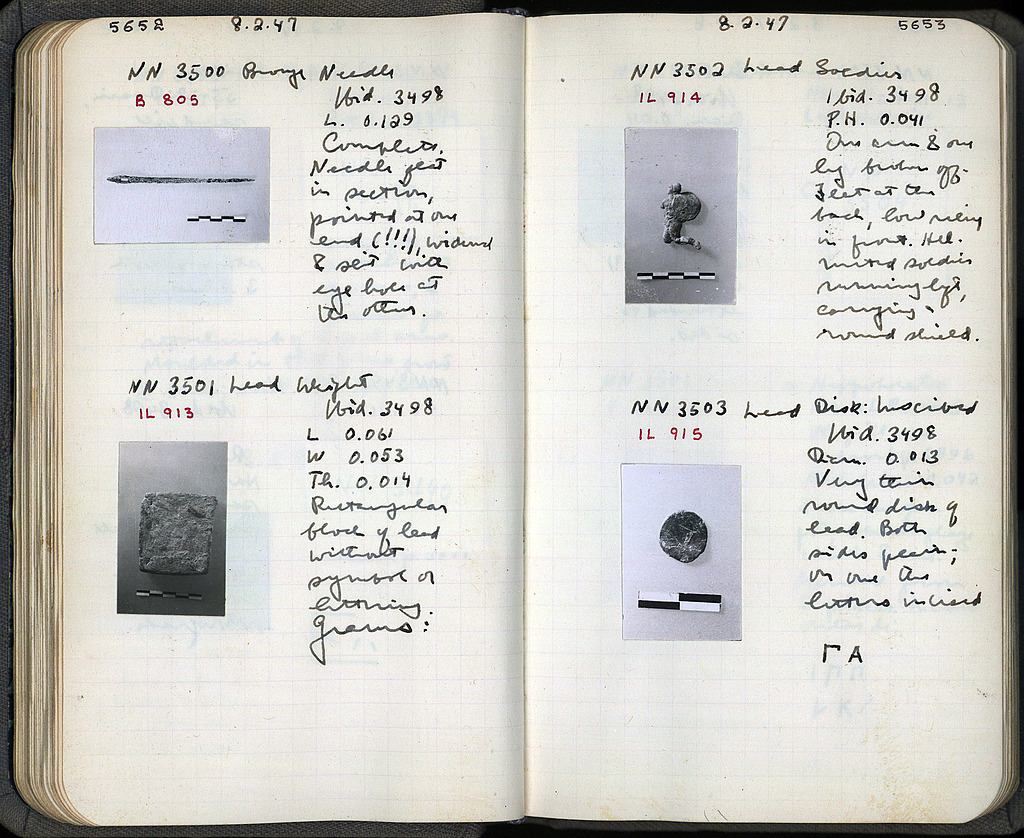 5652 8.2.47
NN 3500 Bronze Needle
B 805
Ibid. 3498
L. 0.129
Complete.
Needle flat
in section,
pointed at one
end (!!!), widened
& slit with
eye hole at
the other.
NN 3501 Lead Weight
IL 913
Ibid. 3498
L 0.061
W 0.053
Th. 0.014
Rectangular
block of lead
without
symbol or
lettering.
Grams:
8.2.47 5653
NN 3502 Lead Soldier
IL 914
Ibid. 3498
P.H. 0.041
One arm & one
leg broken off.
Flat at the
back, low relief
in front. Hel-
meted soldier
running left,
carrying
round shield.
NN 3503 Lead Disk: Inscribed
IL 915
Ibid. 3498
Diam. 0.013
Very thin
round disk of
lead. Both
sides plain;
on one the
letters incised
ΓΑ